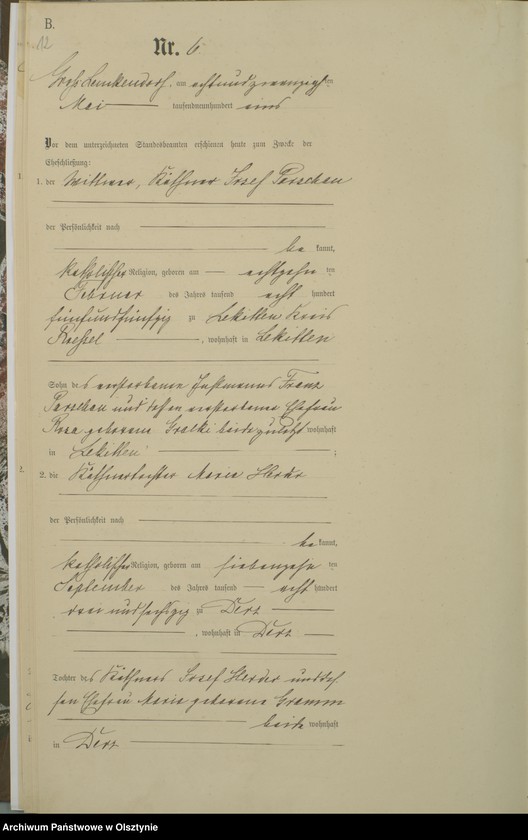 B.
12
Nr. 6
Groß Lemkendorf, am achtundzwanzigsten
Mai tausendneunhundert eins
Vor dem unterzeichneten Standesbeamten erschienen heute zum Zwecke der
Eheschließung:
1. der Wittwer, Käthner Josef Parschau
der Persönlichkeit nach
be kannt,
katholischer Religion, geboren am achtzehn ten
Februar des Jahres tausend acht hundert
fünfundfünfzig zu Lekitten Kreis
Roessel, wohnhaft in Lekitten
Sohn des verstorbenen Instmanns Franz
Parschau und dessen verstorbenen Ehefrau
Rosa geborene Gralki beide zuletzt wohnhaft
in Lekitten ;
2. die Käthnertochter Maria Herder
der Persönlichkeit nach
be kannt,
katholischer Religion, geboren am siebenzehn ten
September des Jahres tausend acht hundert
drei undsechzig zu Derz
, wohnhaft in Derz
Tochter des Käthners Josef Herder und des-
sen Ehefrau Maria geborene Gramm
beide wohnhaft
in Derz
Archiwum Państwowe w Olsztynie